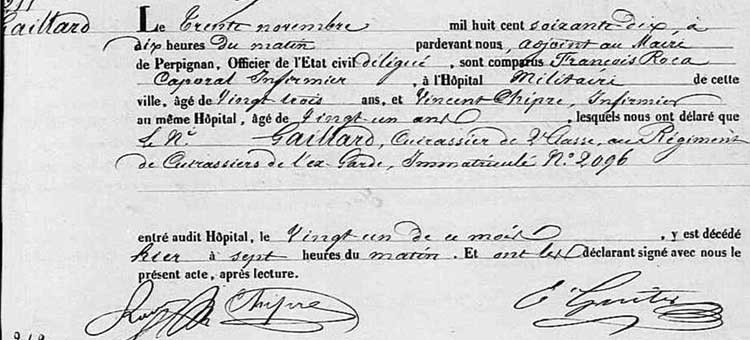 Gaillard
Le trente novembre mil huit cent soixante dix, à
dix heures du matin pardevant nous, adjoint au Maire
de Perpignan, Officier de l'Etat civil délégué, sont comparus François Roca
Caporal Infirmier, à l'Hôpital Militaire de cette
ville, âgé de Vingt trois ans, et Vincent Chipre, Infirmier
au même Hôpital, âgé de Vingt un ans, lesquels nous ont délaré que
le Né. Gaillard, Cuirassier de 2e Classe, au Régiment
de Cuirassiers de l'ex-Garde, Immatriculé No. 2096
entré audit Hôpital, le Vingt un de ce mois, y est décédé
hier à sept heures du matin. Et ont les déclarant signé avec nous le
présent acte, après lecture.
Roca Chipre